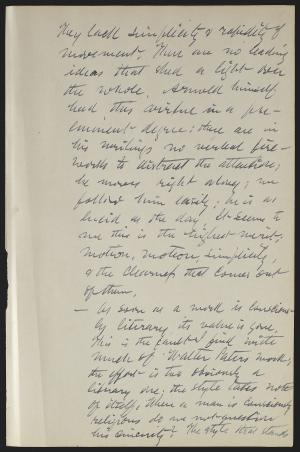 They lack simplicity & rapidity of
movement. There are no leading
ideas that shed a light over
the whole. Arnold himself
had this virtue in a pre-
eminent degree: there are in
his writings no verbal fire-
works to distract the attention;
he moves right along; we
follow him easily; he is as
lucid as the day. It seems to
me this is the highest merit,
motion, motion, simplicity,
& the clearness that comes out
of them.
— As soon as a work is conscious-
ly literary, its value is gone.
This is the fault I find with
much of Walter Paters work;
the effort is too obviously a
literary one; the style takes note
of itself. When a man is consciously
religious do we not question
his sincerity? The style that stands